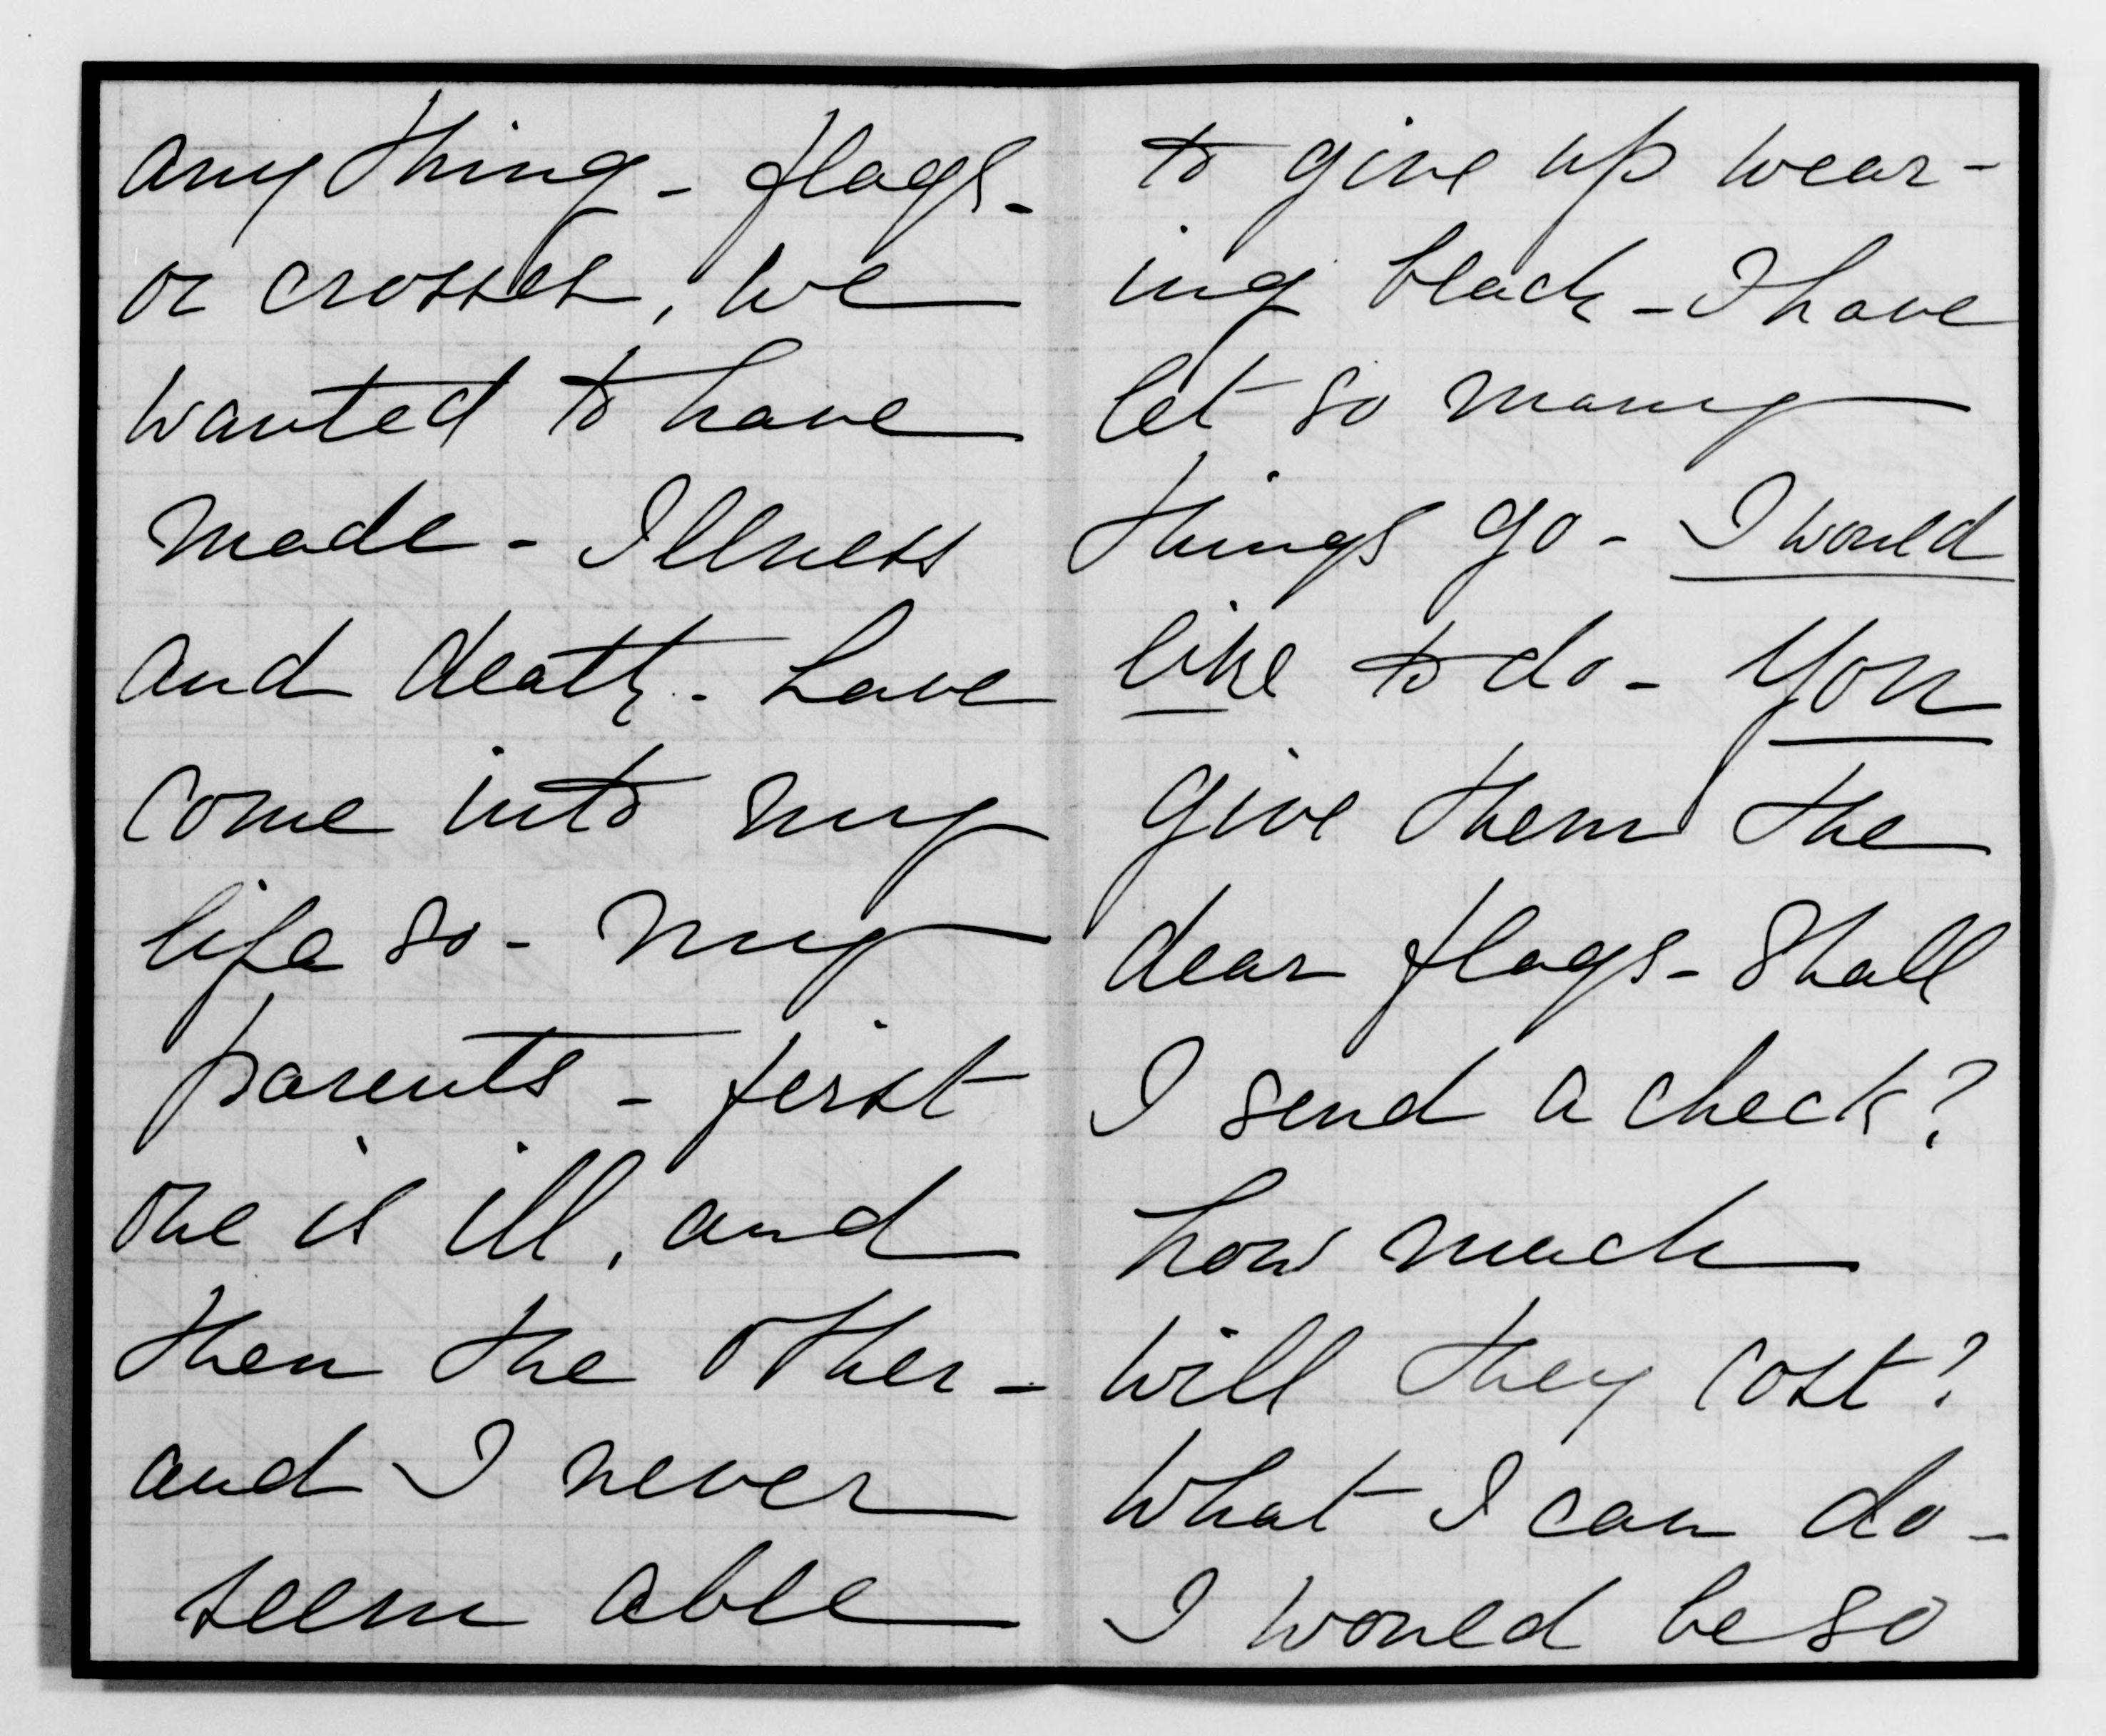 any thing - flags -
or crosses, we
wanted to have
made - Illness
and death - have
come into my
life so - my
parents - first
one is ill, and
then the other -
and I never
seem able
to give up wear-
ing black - I have
let so many
things go - I would
like to do - You
give them the
dear flags - Shall
I send a check?
how much
will they cost?
What I can do -
I would be so